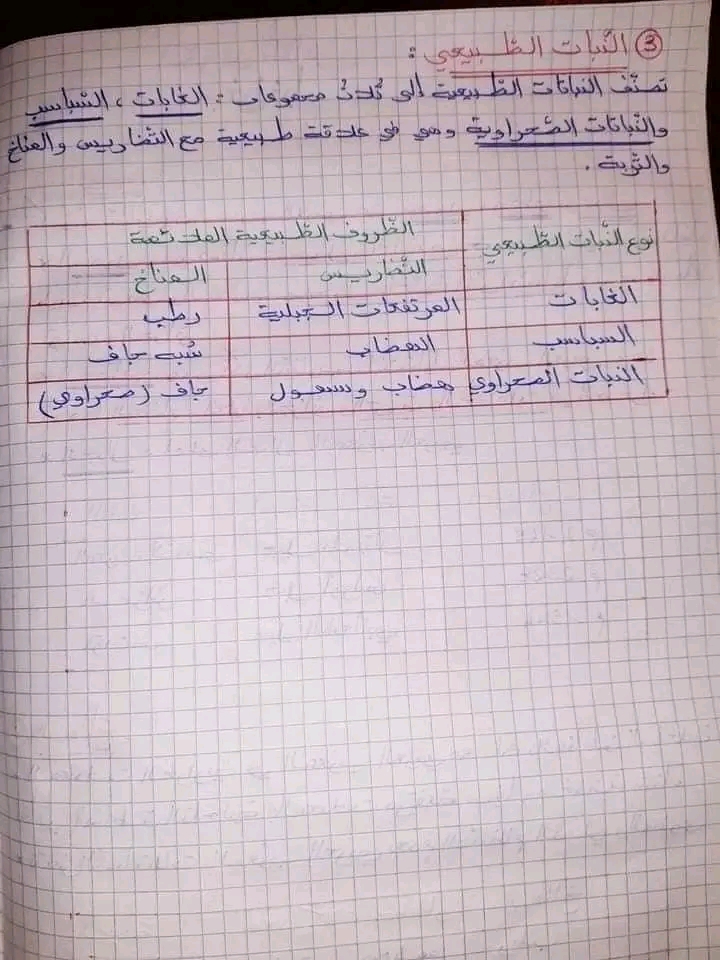 ③ النّبات الطّبيعي :
تصنّف النباتات الطّبيعية إلى ثلاثُ مجموعات : الغابات ، السّباسب
والنّباتات الصّحراوية وهو في علاقة طبيعية مع التّضاريس والمناخ
والتّربة .
نوع النّبات الطّبيعي الظّروف الطّبيعية الملائمة
التّضاريس المناخ
الغابات المرتفعات الجبلية رطب
السباسب الهضاب شبه جاف
النبات الصحراوي هضاب وسهول جاف (صحراوي)